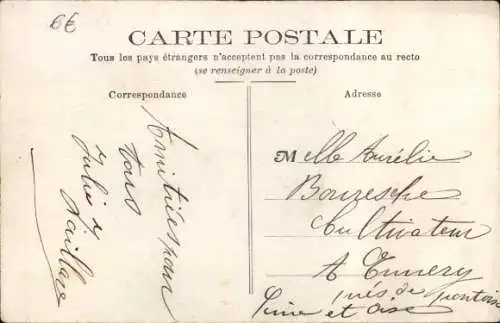 6€
CARTE POSTALE
Tous les pays étrangers n'acceptent pas la correspondance au recto
(se renseigner à la poste)
Correspondance
Adresse
Amitiés pour
tous
Julie
Melle Aurélie
Cultivateur
A Ennery
près de pontoise
Seine et Oise